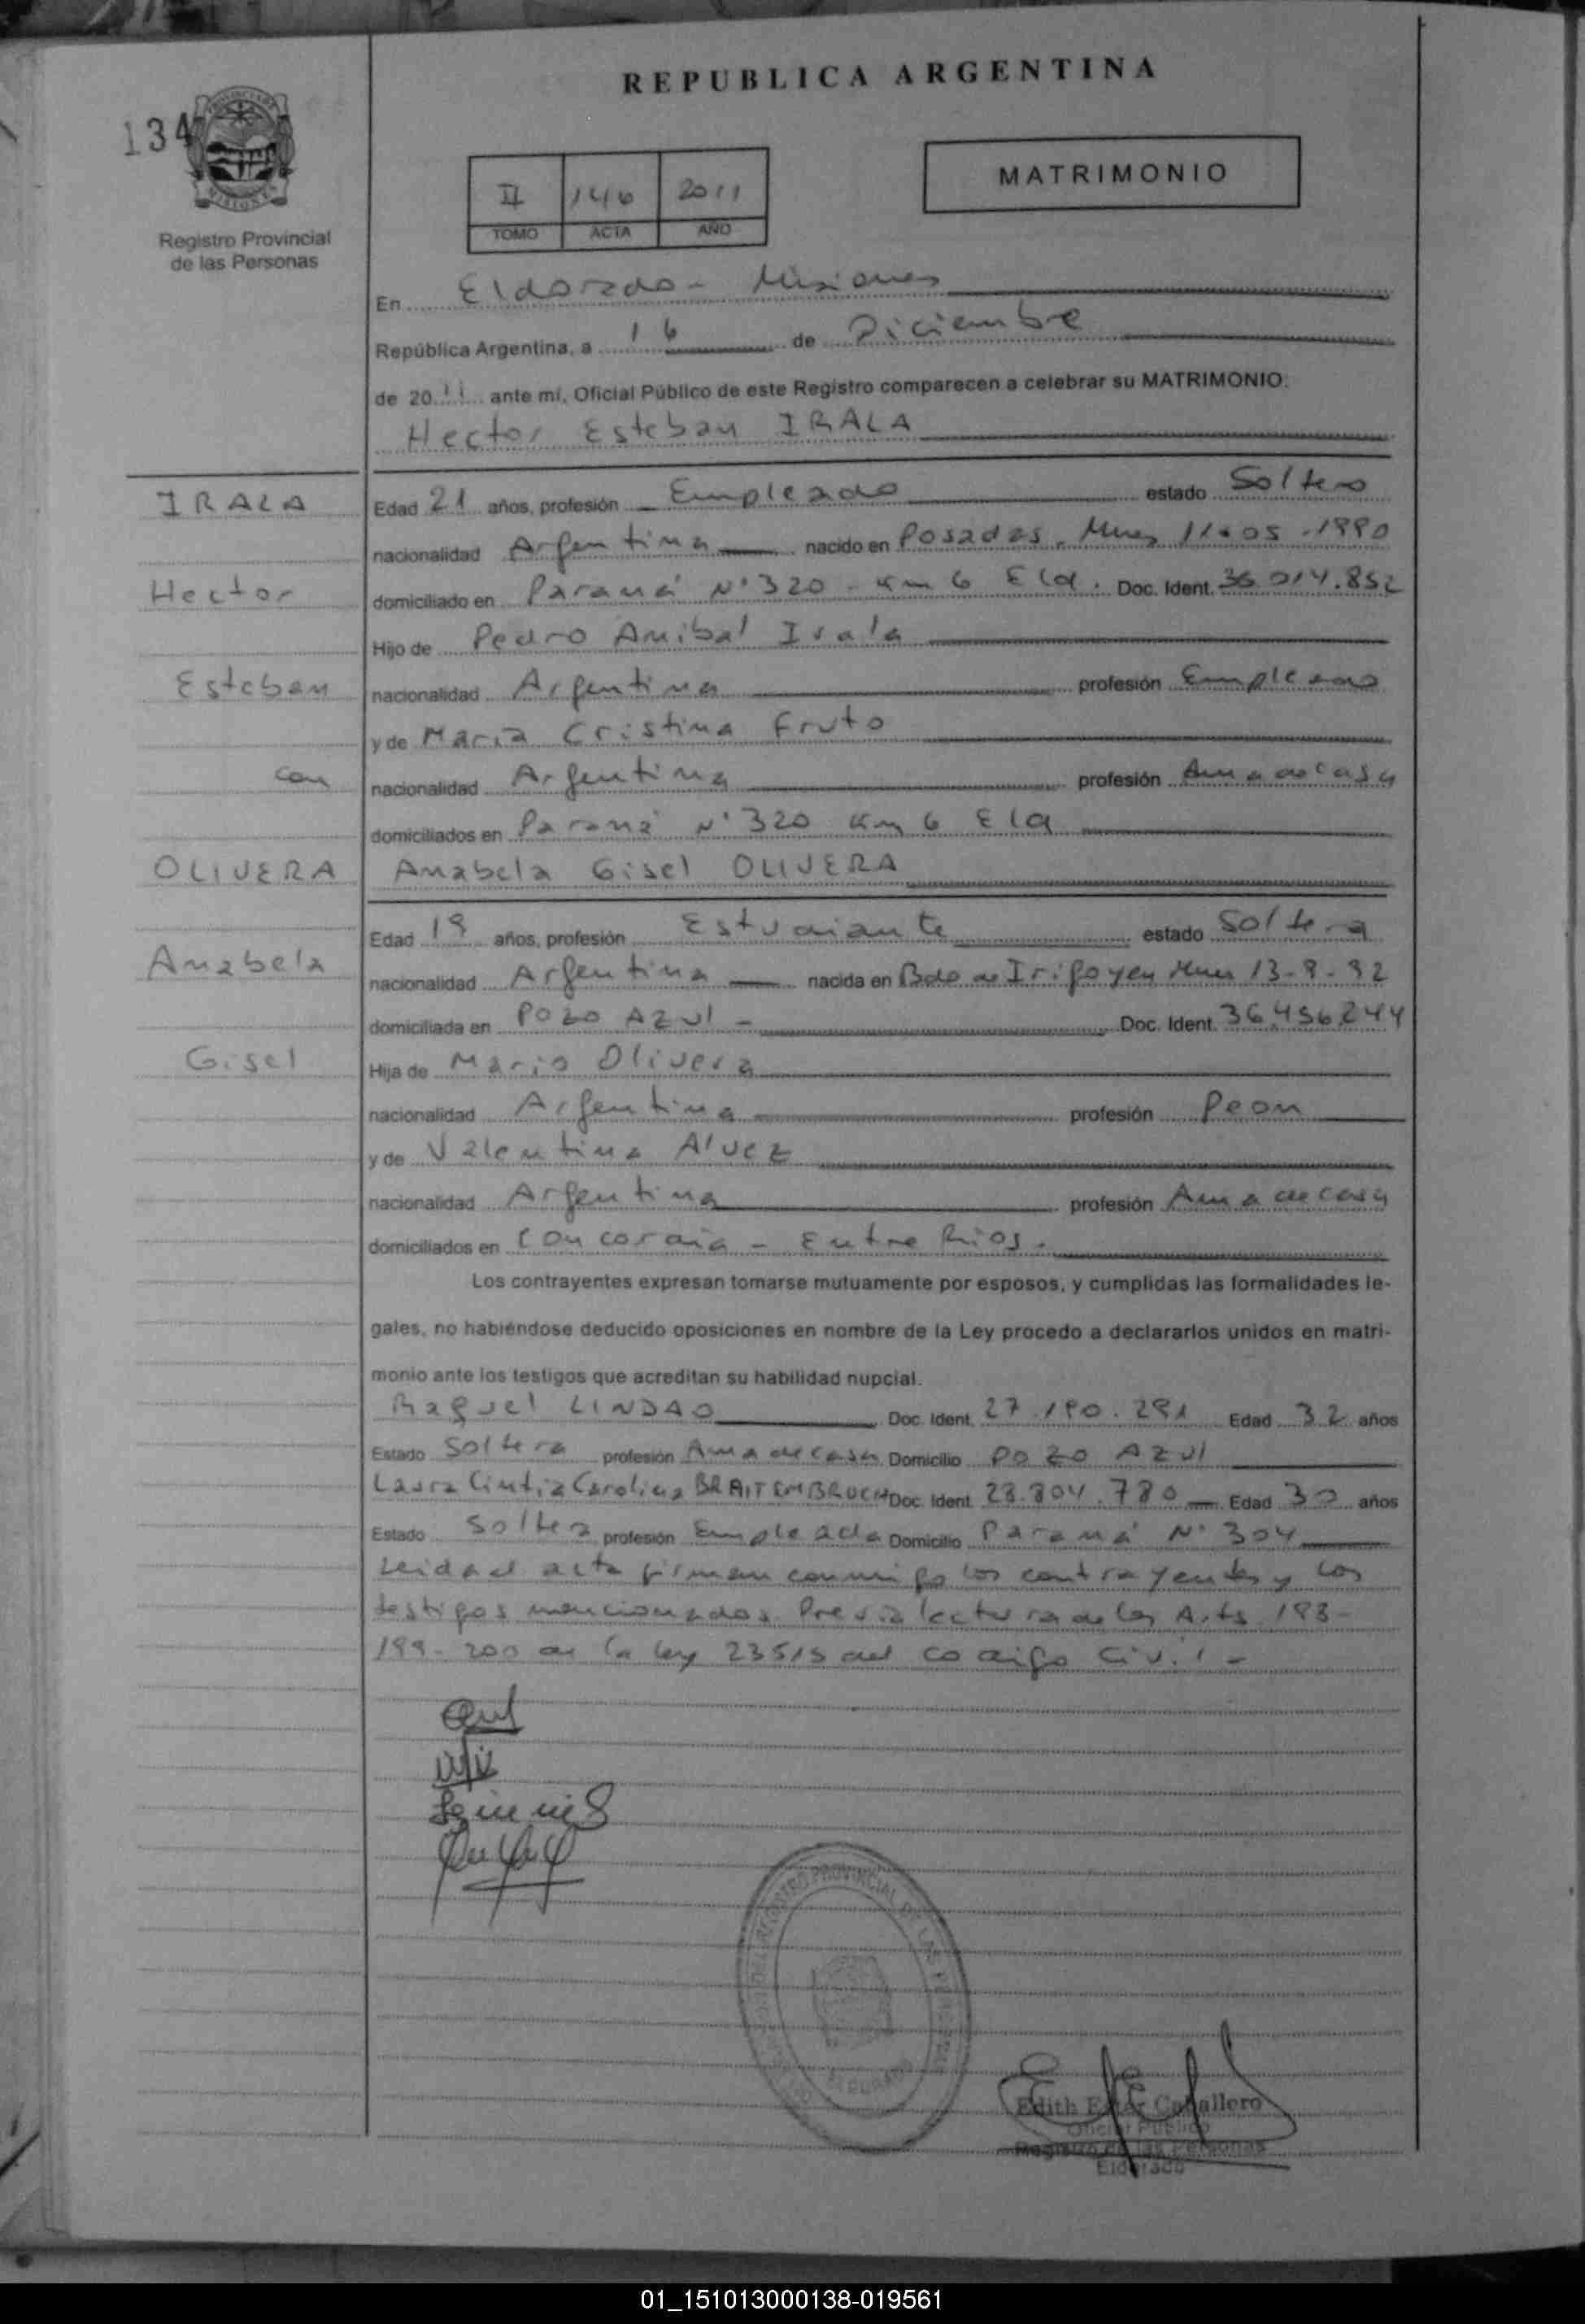 REPUBLICA ARGENTINA
134
PROVINCIA DE MISIONES
Registro Provincial
de las Personas
II 146 2011
TOMO ACTA AÑO
MATRIMONIO
En Eldorado - Misiones
República Argentina, a 16 de Diciembre
de 2011 ante mí, Oficial Público de este Registro comparecen a celebrar su MATRIMONIO:
Hector Esteban IRALA
IRALA
Hector
Esteban
con
OLIVERA
Anabela
Gisel
Edad 21 años, profesión Empleado estado Soltero
nacionalidad Argentina nacido en Posadas, Mnes 11-05-1990
domiciliado en Paraná N° 320 - Km 6 Eld. Doc. Ident. 36.014.852
Hijo de Pedro Anibal Irala
nacionalidad Argentina profesión Empleado
y de Maria Cristina Fruto
nacionalidad Argentina profesión Ama de casa
domiciliados en Paraná N° 320 Km 6 Eld
Anabela Gisel OLIVERA
Edad 19 años, profesión Estudiante estado Soltera
nacionalidad Argentina nacida en Bdo de Irigoyen Mnes 13-9-92
domiciliada en Pozo Azul - Doc. Ident. 36.456.244
Hija de Mario Olivera
nacionalidad Argentina profesión Peon
y de Valentina Alvez
nacionalidad Argentina profesión Ama de casa
domiciliados en Concordia - Entre Rios.
Los contrayentes expresan tomarse mutuamente por esposos, y cumplidas las formalidades le-
gales, no habiéndose deducido oposiciones en nombre de la Ley procedo a declararlos unidos en matri-
monio ante los testigos que acreditan su habilidad nupcial.
Raquel LINDAO Doc. Ident. 27.190.291 Edad 32 años
Estado Soltera profesión Ama de casa Domicilio Pozo Azul
Laura Cintia Carolina BRAITEMBRUCH Doc. Ident. 28.804.780 Edad 30 años
Estado Soltera profesión Empleada Domicilio Paraná N° 304
Leida el acta firman conmigo los contrayentes y los
testigos mencionados. Previa lectura de los Arts 198-
199-200 de la ley 23515 del codigo Civil -
REGISTRO PROVINCIAL DE LAS PERSONAS
ELDORADO
Edith Ester Caballero
Oficial Público
Registro de las Personas
Eldorado
01_151013000138-019561